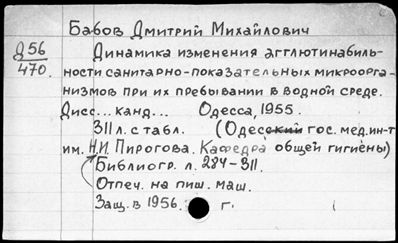 Бабов Дмитрий Михайлович
Д56
470.
Динамика изменения агглютинабиль-
ности санитарно-показательных микроорга-
низмов при их пребывании в водной среде.
Дисс... канд... Одесса, 1955.
311 л. с табл. (Одесский гос. мед. ин-т
им. Н.И. Пирогова. Кафедра общей гигиены)
Библиогр. л. 284-311.
Отпеч. на пиш. маш.
Защ. в 1956. г.